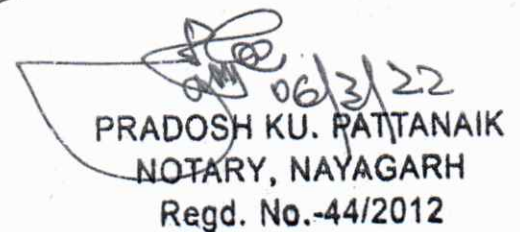 06/3/22
PRADOSH KU. PATTANAIK
NOTARY, NAYAGARH
Regd. No.-44/2012